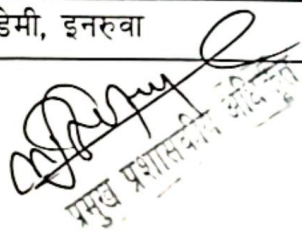 डेमी, इनरुवा
प्रमुख प्रशासकीय अधिकृत